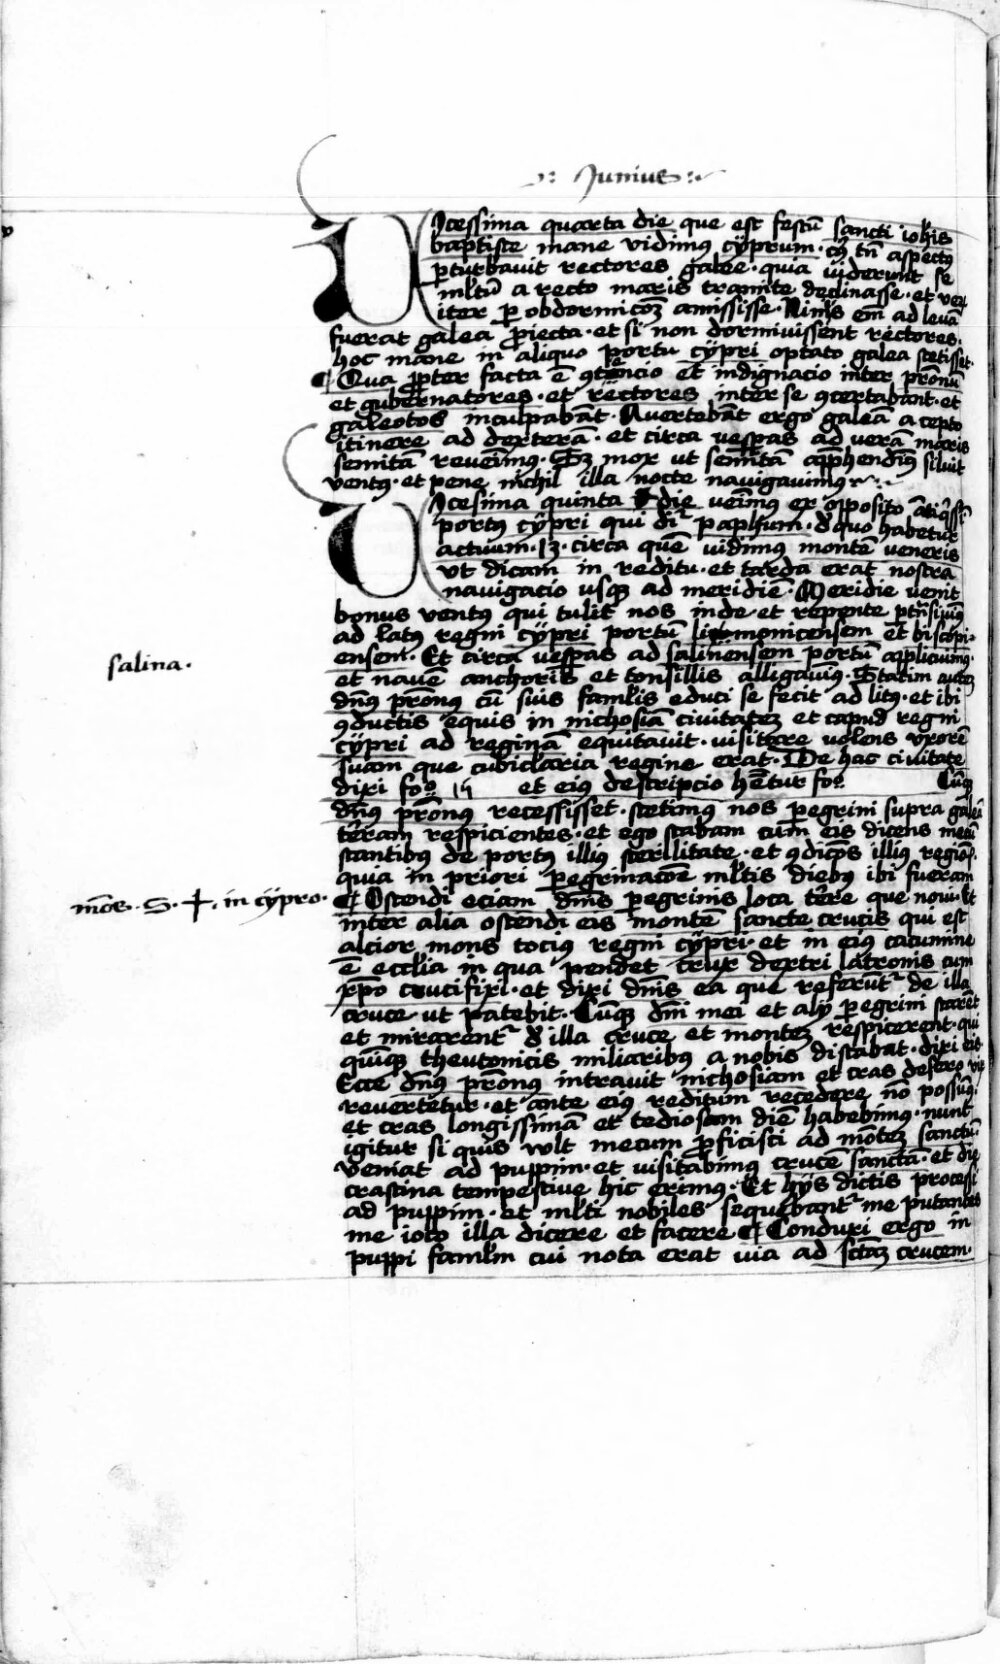 Junius
Vicessima quarta die que est festū sancti ioh̄is
baptiste mane vidimꝰ cÿprum · cꝰ tn̄ aspectꝰ
ꝑturbavit rectores galee · quia viderunt se
ml̄tū a recto maris tramite declinasse · et
iter ꝑ obdormicōȝ amississe · Nimis em̄ ad levā
fuerat galea ꝓiecta · et si non dormivissent rectores ·
hoc mane in aliquo portu cÿpri optato galea stetisset ·
¶ Qua ꝓpter facta ē ꝯtēncio et indignacio inter pr̄onū
et gubernatores · et rectores inter se ꝯcertabant · et
galeotos inculpabāt · Avertebāt ergo galeā a cepto
itinere ad dexterā · et circa vesꝑas ad verā maris
semitā revēimꝰ · Sȝ mox ut semitā app̄hendimꝰ siluit
ventꝰ · et pene nichil illa nocte navigavimꝰ
Vicesima quinta die vēimꝰ ex opposito
portꝰ cÿpri qui dr̄ paphum · de quo habetur
actuum · 13 · circa quē vidimꝰ montē veneris
ut dicam in reditu · et tarda erat nostra
navigacio usqȝ ad meridiē · Meridie venit
bonus ventꝰ qui tulit nos inde et repente
ad latꝰ regni cÿpri portū limonicensem et biscopi-
ensem · Et circa vesꝑas ad salinensem portū applicuimꝰ ·
et navē anchoris et tonsillis alligavimꝰ · Statim autem
dn̄ꝰ pr̄onꝰ cū suis faml̄is educi se fecit ad litꝰ · et ibi
ꝯductis equis in nichosiā civitateȝ et capud regni
cÿpri ad reginā equitavit · visitare volens uxorē
suam que cubiclaria regine erat · De hac civitate
dixi fo° et eiꝰ descripcio hētur fo° Cūqȝ
dn̄ꝰ pr̄onꝰ recessisset · stetimꝰ nos ꝑegrini supra galeā
terram respicientes · et ego stabam cum eis dicens mecū
stantibꝰ de portꝰ illiꝰ sterilitate · et ꝯdicōs illiꝰ regiōs ·
quia in priori ꝑegrinacōe ml̄tis diebꝰ ibi fueram
¶ Ostendi eciam dn̄is ꝑegrinis loca terre que novi · Et
inter alia ostendi eis montē sancte crucis qui est
alcior mons tocius regni cÿpri · et in eiꝰ cacumine
ē eccl̄ia in qua pendet crux dextri latronis cum
xp̄o crucifixi · et dixi dn̄is ea que referūt᷑ de illa
cruce ut patebit · Cūqȝ dn̄i mei et alij ꝑegrini starēt
et mirarent᷑ de illa cruce et monteȝ respicerent · qui
quīqȝ theutonicis miliaribꝰ a nobis distabat · dixi eis
Ecce dn̄ꝰ pr̄onꝰ intravit nichosiam et cras de sero vix
revertetur · et ante eiꝰ reditum recedere nō possumꝰ ·
et cras longissimā et tediosam diē habebimꝰ · nunc
igitur si quis vult mecum ꝓficisci ad mōteȝ sanctū
veniat ad puppim · et visitabimꝰ crucē sanctā · et die
crastina tempestive hic erimꝰ · Et hÿs dictis processi
ad puppim · et ml̄ti nobiles sequebant᷑ me putantes
me ioco illa dicere et facere ¶ Conduxi ergo in
puppi faml̄m cui nota erat via ad sctāȝ crucem ·
salina ·
mōs · S · ✝ · in cÿpro ·